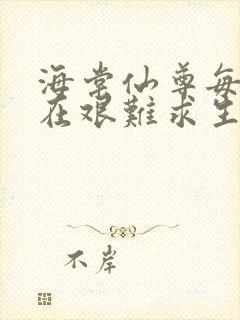 海棠仙尊每
在艰難求生
不岸